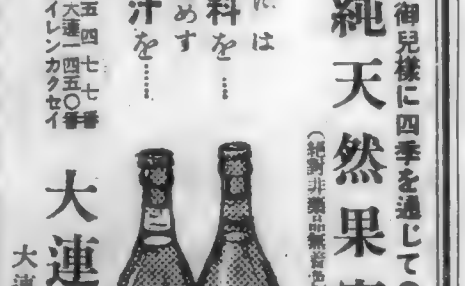 御兒樣に四季を通じての
純天然果
には
料を……
めす
汁を……
五四七七番
大連一四五〇番
イレンカクセイ
大連
大連